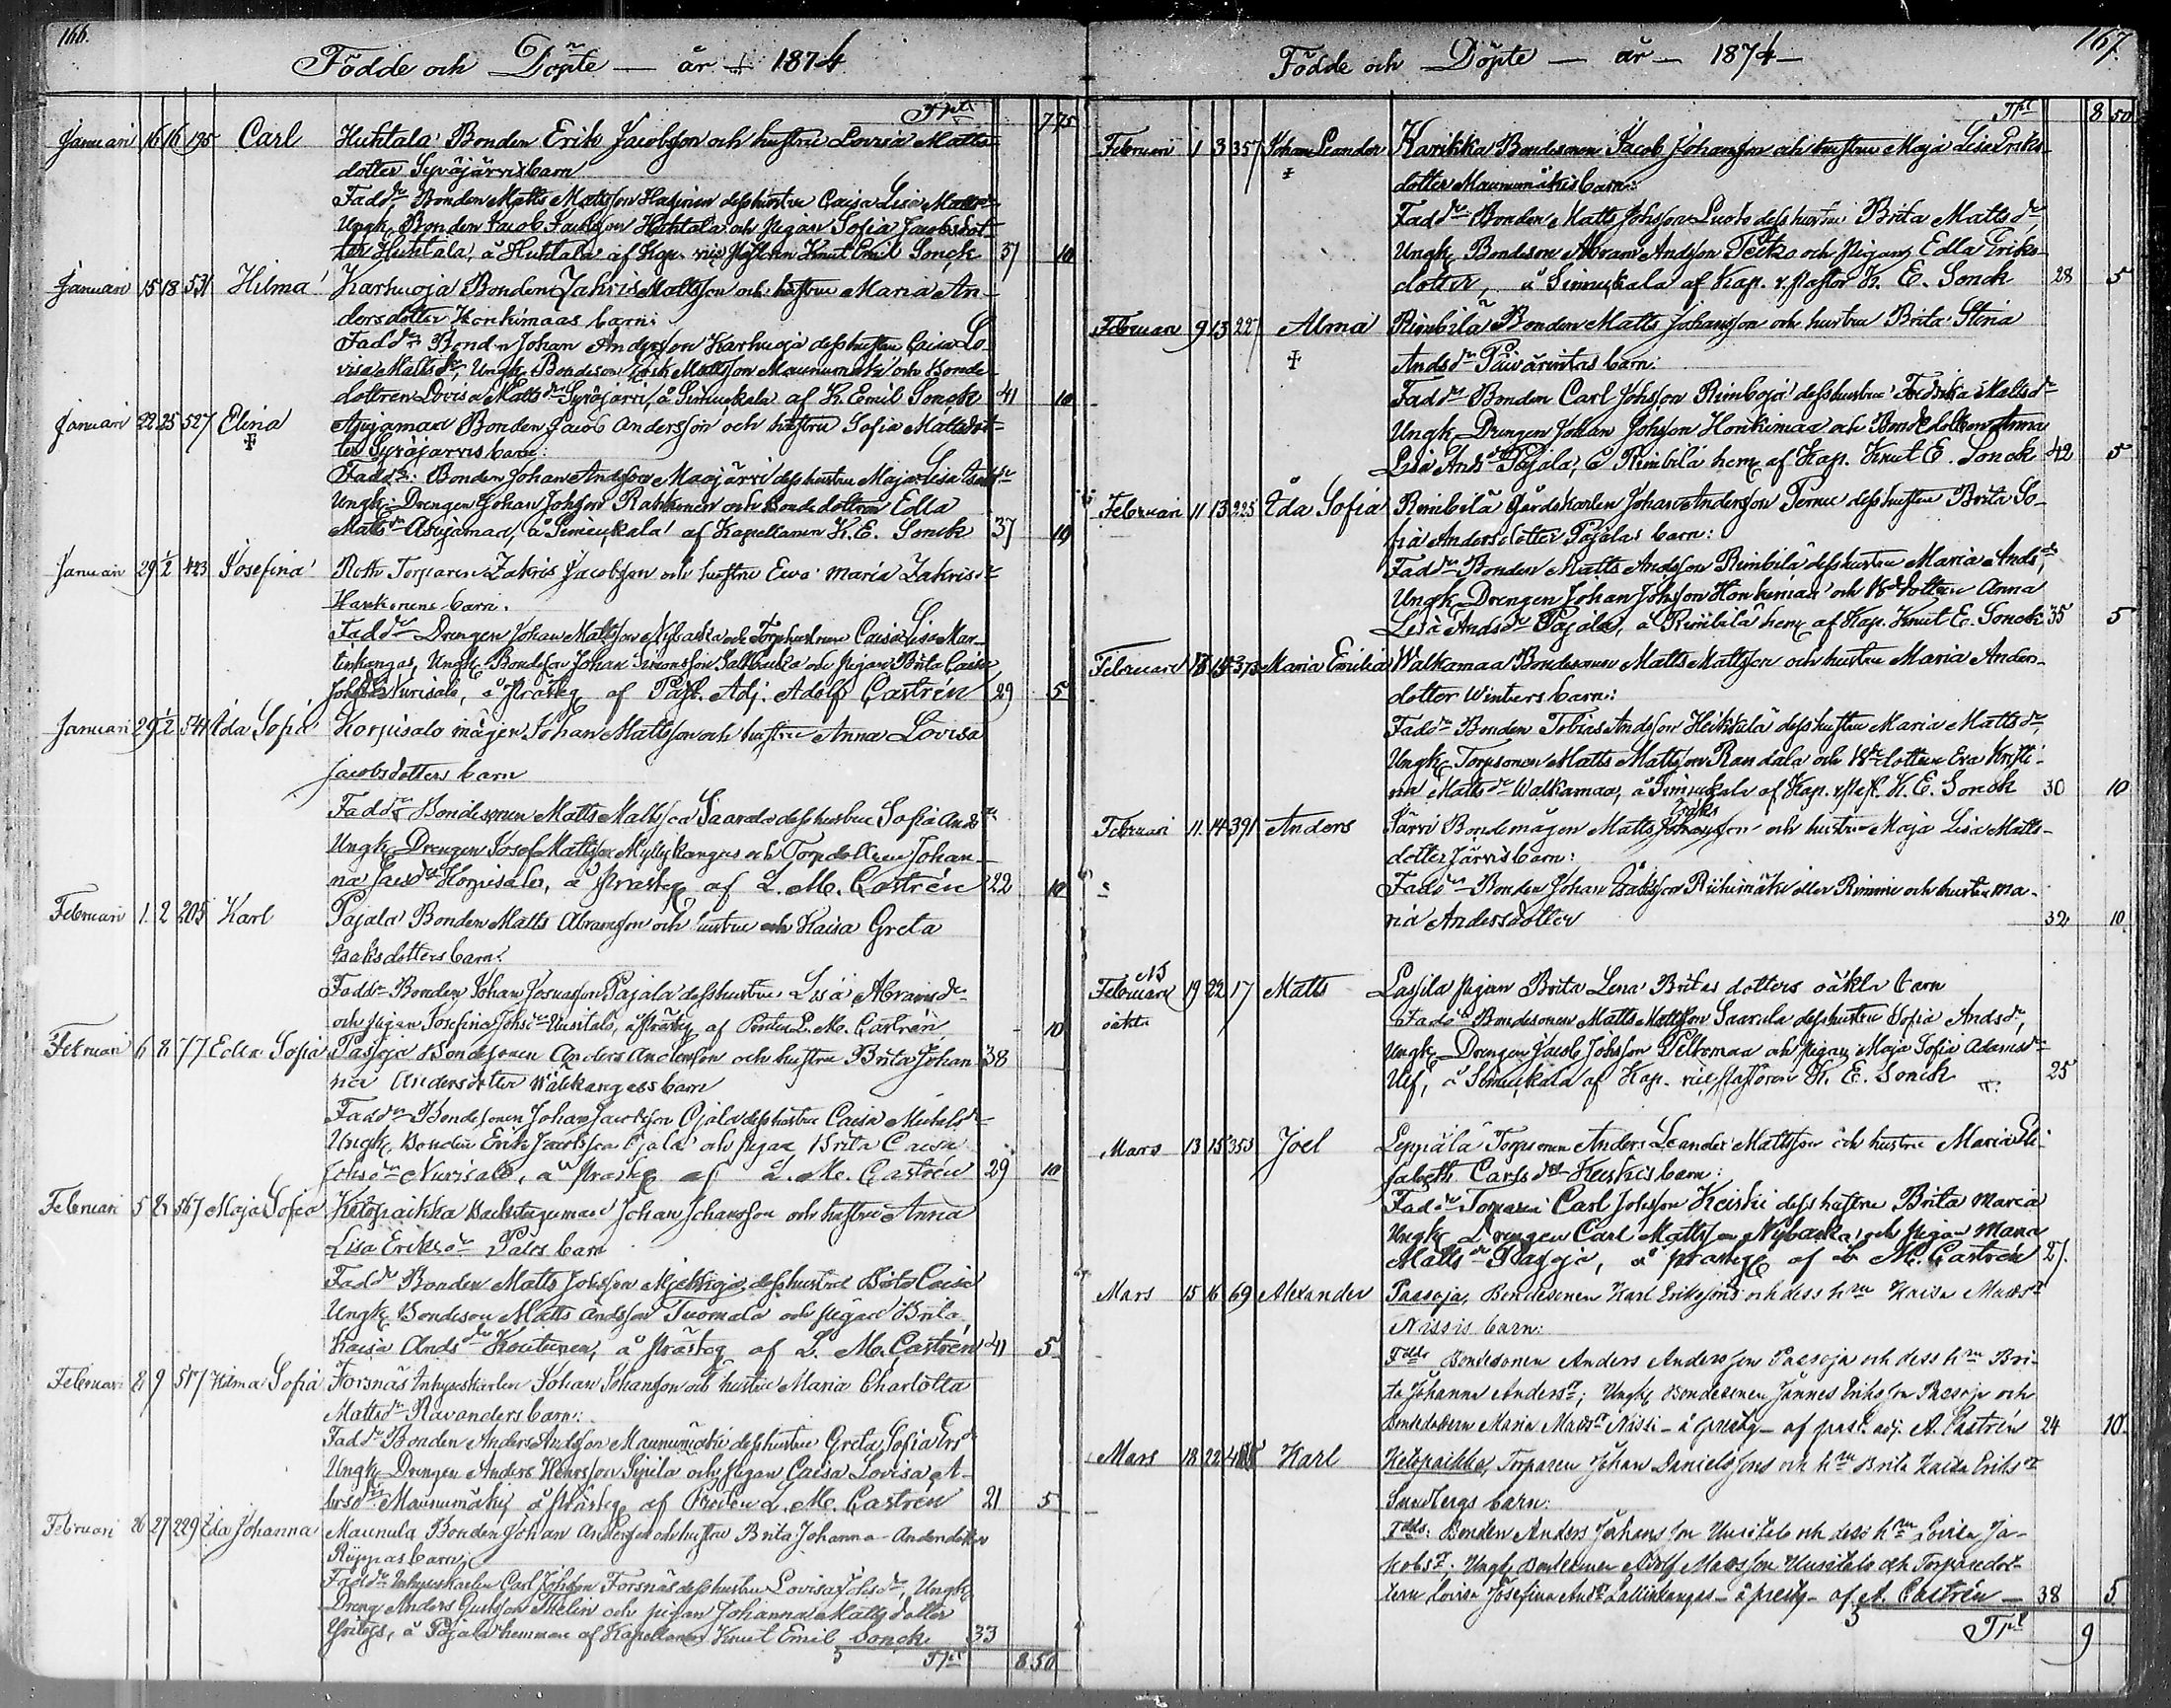 166.
Födde och Döpte — år — 1874
Trpt 7 75
Januari 16 16 195 Carl Huhtala Bonden Erik Jacobsson och hustru Lovisa Matts-
dotter Syväjärvis barn
Fadd:r Bonden Matts Mattsson Hasinen dess hustru Caisa Lisa
Ungk. Bonden Jacob Jacobsson Huhtala och pigan Sofia Jacobsdot-
ter Huhtala, å Huhtala af Kap. vice pastorn Knut Emil Sonck 37 10
Januari 15 18 531 Hilma Karhuoja Bonden Zakris Mattsson och hustru Maria An-
dersdotter Honkimaas barn:
Fadd:r Bonden Johan Andersson Karhuoja dess hustru Caisa Lo-
visa Mattsd:r, Ungk. Bondeson Mattsson Maunumäki och Bonde
dottren Lovisa Matts d:r Syväjärvi, å Simukkala af K. Emil Sonck 41 10
Januari 22 25 527 Elina Bonden Jacob Andersson och hustru Sofia Mattsdot-
ter Syväjärvis barn:
Fadd:r: Bonden Johan Andsson Maajärvi dess hustru Maja Lisa
Ungk. Drengen Johan Johsson Rahkonen och Bondedottren Edla
Matts d:r å Simukkala af Kapellanen K. E. Sonck 37 10
Januari 29 1/2 443 Josefina Roth Torparen Zakris Jacobsson och hustru Eva Maria Zakrisd:r
barn.
Fadd:r Drengen Johan Mattsson Nybacka och Torphustrun Caisa Lisa Mar-
tinkangas, Ungk. Bondeson Johan Simonsson och pigan Brita Caisa
Johsd:r Nurisalo, å prästg. af Past. Adj. Adolf Castrén 29 5
Januari 29 1/2 544 Ida Sofia Korpisalo mågen Johan Mattsson och hustru Anna Lovisa
Jacobsdotters barn
Fadd:r Bondesonen Matts Mattsson Saarela dess hustru Sofia Andsd:r
Ungk. Drengen Josef Mattsson Myllykangas och Torpdottren Johan-
na Korpisalo, å prästg. af L. M. Castrén 22 10
Februari 1 2 205 Karl Pajala Bonden Matts Abramsson och hustru Kaisa Greta
Isaksdotters barn:
Fadd:r Bonden Johan Josuasson Pajala dess hustru Lisa Abramsd:r
och pigan Josefina Johsd:r Uusitalo, å prästg. af Prosten L. M. Castrén 10
Februari 6 8 77 Edla Sofia Pasoja Bondesonen Anders Andersson och hustru Brita Johan- 38
na Andersdotter Välikangas barn
Fadd:r Bondesonen Johan Jacobsson Ojala dess hustru Caisa Michelsd:r
Ungk. Bonden Erik Jacobsson Ojala och pigan Brita Caisa
Johsd:r Nurisalo, å prästg. af L. M. Castrén 29 10
Februari 5 8 567 Maja Sofia Ketopaikka Backstuguman Johan Johansson och hustru Anna
Lisa Eriksd:r Palos barn
Fadd:r Bonden Matts Johsson dess hustru Brita Caisa
Ungk. Bondeson Matts Andsson Tuomala och pigan Brita
Kaisa Ands d:r Koutunen, å prästg. af L. M. Castrén 41 5
Februari 8 9 517 Hilma Sofia Forsnäs Inhyseskarlen Johan Johansson och hustru Maria Charlotta
Mattsd:r Ravanders barn:
Fadd:r Bonden Anders Andsson Maunumäki dess hustru Greta Sofia Ersd:r
Ungk. Drengen Anders Henrsson Sipilä och pigan Caisa Lovisa A-
brsd:r Maunumäki, å prästg. af Prosten L. M. Castrén 21 5
Februari 26 27 229 Ida Johanna Maunula Bonden Johan Andersson och hustru Brita Johanna Andersdotter
Ryppas barn:
Fadd:r Inhyseskarlen Carl Johsson Forsnäs dess hustru Lovisa Johsd:r, Ungk.
Dreng Anders Gustsson Thelin och pigan Johanna Mattsdotter
å Pajala hemman af Kapellanen Knut Emil Sonck 33
5 Trpt 8 50
167.
Födde och Döpte — år — 1874 —
Trpt 8 50
Februari 1 3 357 Johan Leander Karikka Bondesonen Jacob Johansson och hustru Maja Lisa Eriks-
dotter Maunumäkis barn:
Fadd:r Bonden Matts Johsson Luoto dess hustru Brita Mattsd:r,
Ungk. Bondeson Abram Andsson och pigan Edla Eriks-
dotter, å Simukkala af Kap. v. pastor K. E. Sonck 28 5
Februari 9 13 227 Alma Rimbilä Bonden Matts Johansson och hustru Brita Stina
Andsd:r Päivärintas barn:
Fadd:r Bonden Carl Johsson Rimboja dess hustru Fredrika Mattsd:r
Ungk. Drengen Johan Johsson Honkimaa och Bonde dottren Anna
Lisa Andsd:r Pajala, å Rimbilä hem. af Kap. Knut E. Sonck 42 5
Februari 11 13 225 Ida Sofia Rimbilä Gårdskarlen Johan Andersson Ternu dess hustru Brita So-
fia Andersdotter Pajalas barn:
Fadd:r Bonden Matts Andsson Rimbilä dess hustru Maria Andsd:r,
Ungk. Drengen Johan Johsson Honkimaa och Bdedottren Anna
Lisa Andsd:r Pajala, å Rimbilä hem. af Kap. Knut E. Sonck 35 5
Februari 8 14 373 Maria Emilia Walkamaa Bondesonen Matts Mattsson och hustru Maria Anders-
dotter Winters barn:
Fadd:r Bonden Tobias Andsson Heikkilä dess hustru Maria Mattsd:r,
Ungk. Torpsonen Matts Mattsson Randala och Bdedottren Eva Kristi-
na Mattsd:r Walkamaa, å Simukkala af Kap. v. past. K. E. Sonck 30 10
Februari 11 14 391 Anders Järvi Bondemågen Matts Isaksson och hustru Maja Lisa Matts-
dotter Järvis barn:
Fadd:r Bonden Johan Isaksson Riihimäki eller Rimmi och hustru Ma-
ria Andersdotter 32 10
N3
Februari 19 22 17 Matts Lassila pigan Brita Lena Britas dotters oäkta barn
oäkta Fadd:r Bondesonen Matts Mattsson Saarela dess hustru Sofia Andsd:r,
Ungk. Drengen Jacob Johsson Peltomaa och pigan Maja Sofia Adamsd:r
Ulf, å Simukkala af Kap. vice pastoren K. E. Sonck 25
Mars 13 15 353 Joel Leppiälä Torpsonen Anders Leander Mattsson och hustru Maria Eli-
sabeth Carlsd:r Keiskis barn:
Fadd:r Torparen Carl Johsson Keiski dess hustru Brita Maria
Ungk. Drengen Carl Mattsson Nybacka och pigan Maria
Matts d:r Pasoja, å prästg. af L. M. Castrén 27.
Mars 15 16 69 Alexander Pasoja, Bondesonen Karl Erikssons och dess h:ru Kaisa Matsd:r
Nissis barn:
Fadds Bondesonen Anders Andersson Pasoja och dess h:ru Bri-
ta Johanna Andersd:r; Ungk. Bondesonen Jannes Eriksson Pasoja och
Bondedottern Maria Matsd:r Nissi — å prestg — af past. adj. A. Castrén 24 10
Mars 18 22 Karl Ketopaikka, Torparen Johan Danielssons och h:ru Brita Kaisa Eriksd:r
Sundbergs barn:
Fadds: Bonden Anders Johansson Uusitalo och dess h:ru Lovisa Ja-
kobsd:r. Ungk. Bondesonen Adolf Matsson Uusitalo och Torparedot-
tern Lovisa Josefina Andsd:r — å prestg — af A. Castrén — 38 5
5 Trpt 9